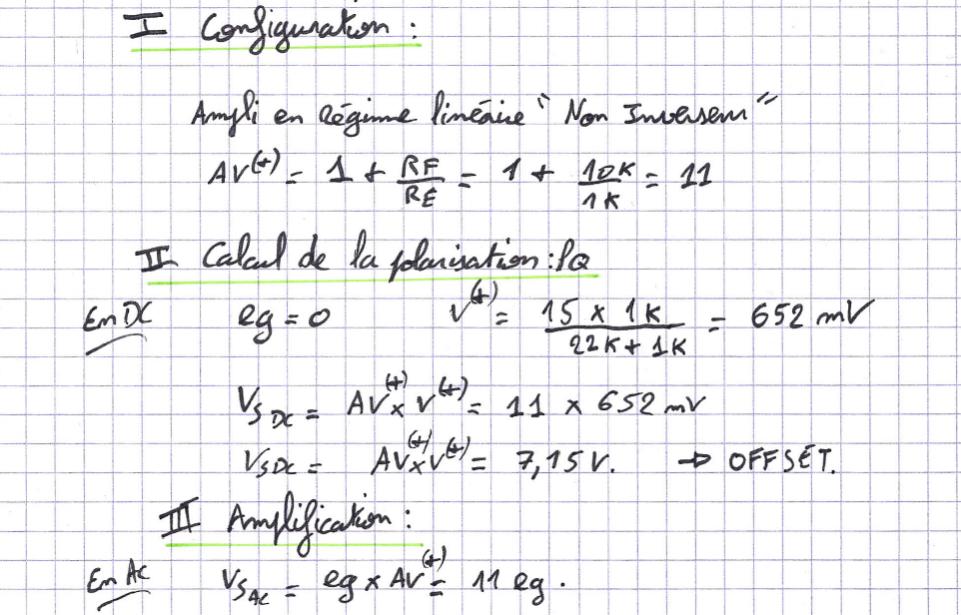 I Configuration :
Ampli en Régime linéaire "Non Inverseur"
AV(+) = 1 + RF/RE = 1 + 10K/1K = 11
II Calcul de la polarisation : PQ
En DC eg = 0 V(+) = 15 x 1K / 22K + 1K = 652 mV
VS DC = AV(+) x V(+) = 11 x 652 mV
VSDC = AV(+) x V(+) = 7,15 V. → OFFSET.
III Amplification :
En AC VSAC = eg x AV(+) = 11 eg .